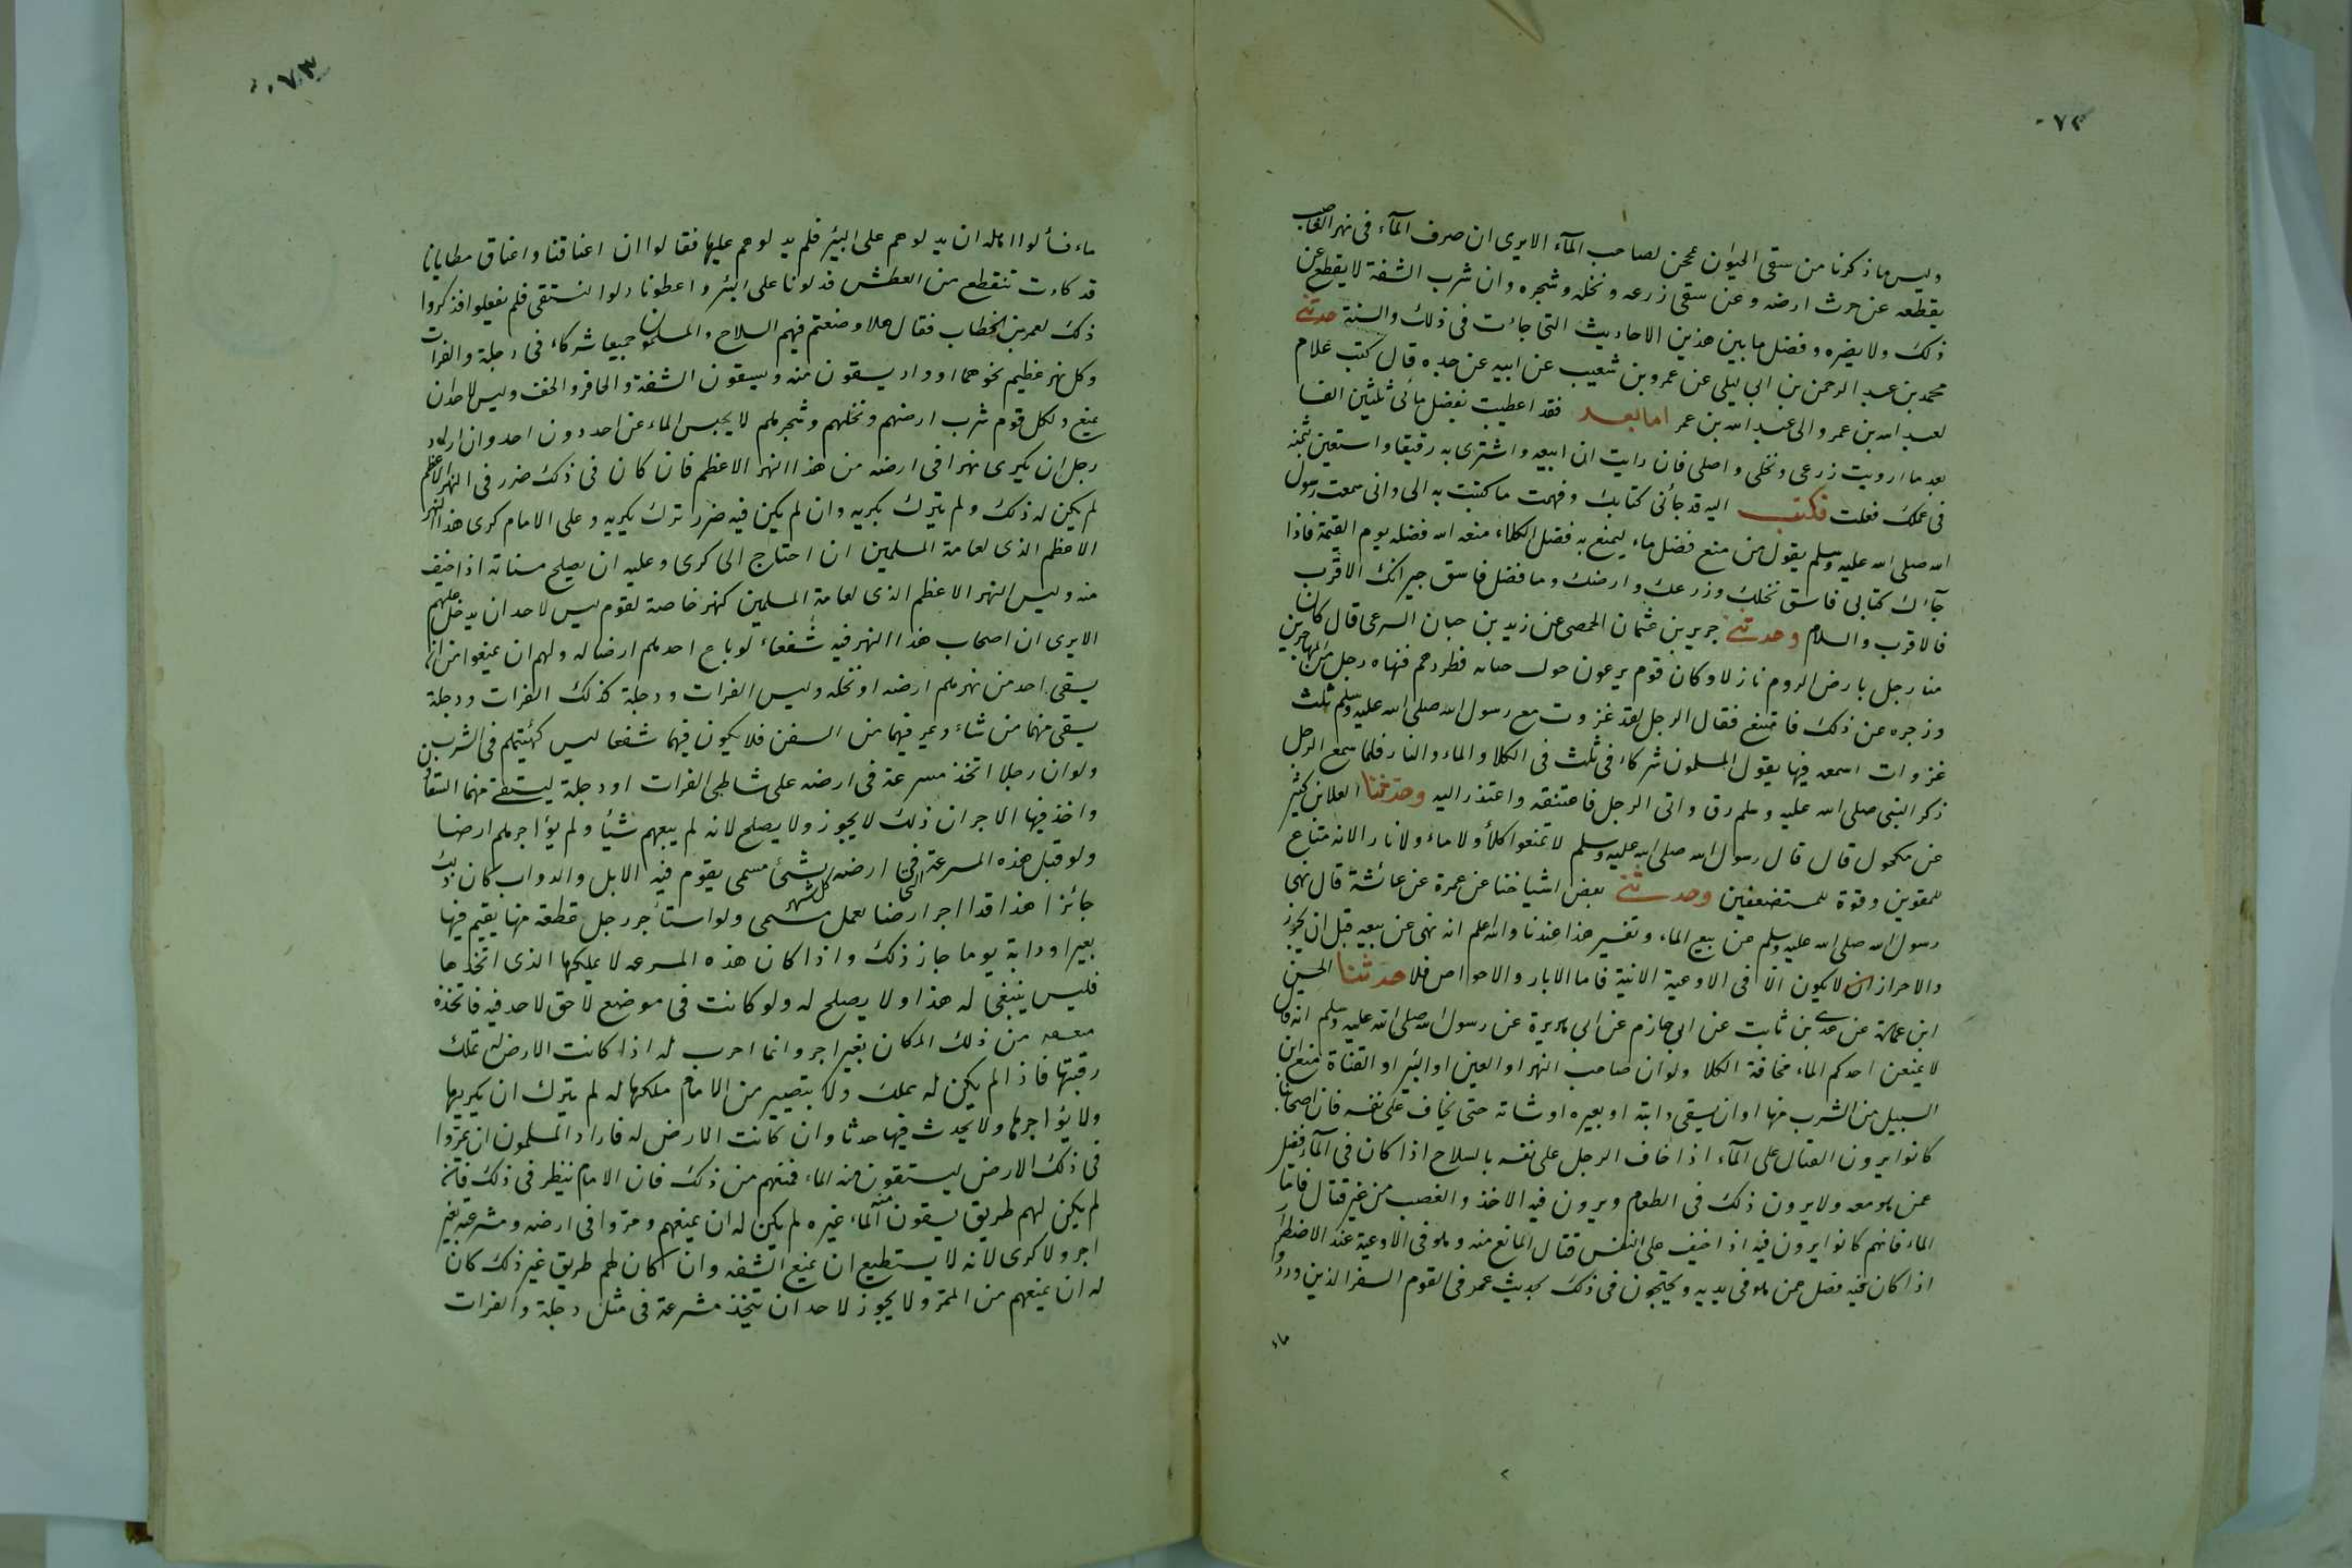 ٧٢
وليس ما ذكرنا من سقى الحيوان بمحن لصاحب المآء الا يرى ان صرف المآء فى نهر الغاصب
يقطعه عن حرث ارضه وعن سقى زرعه ونخله وشجره وان شرب الشفة لا يقطع عن
ذلك ولا يضره وفضل ما بين هذين الاحاديث التى جاءت فى ذلك والسنة حدثنى
محمد بن عبد الرحمن بن ابى ليلى عن عمرو بن شعيب عن ابيه عن جده قال كتب غلام
لعبد الله بن عمرو الى عبد الله بن عمر اما بعد فقد اعطيت بفضل مائى ثلثين الفا
بعد ما ارويت زرعى ونخلى واصلى فان رايت ان ابيعه واشترى به رقيقا واستعين بثمنه
فى عملك فعلت فكتب اليه قد جأنى كتابك وفهمت ما كتبت به الى وانى سمعت رسول
الله صلى الله عليه وسلم يقول من منع فضل ماء ليمنع به فضل الكلاء منعه الله فضله يوم القيمة فاذا
جآءك كتابى فاسق نخلك وزرعك وارضك وما فضل فاسق جيرانك الاقرب
فالاقرب والسلام وحدثنى جرير بن عثمان الحمصى عن زيد بن حبان السرعى قال كان
منا رجل بارض الروم نازلا وكان قوم يرعون حول حبائه فطردهم فنهاه رجل من المهاجرين
وزجره عن ذلك فامتنع فقال الرجل لقد غزوت مع رسول الله صلى الله عليه وسلم ثلث
غزوات اسمعه فيها يقول المسلمون شركاء فى ثلث فى الكلا والماء والنار فلما سمع الرجل
ذكر النبى صلى الله عليه وسلم رق واتى الرجل فاعتنقه واعتذر اليه وحدثنا العلا بن كثير
عن مكحول قال قال رسول الله صلى الله عليه وسلم لا تمنعوا كلأ ولا ماء ولا نارا لانه متاع
للمقوين وقوة للمستضعفين وحدثنى بعض اشياخنا عن عمرة عن عائشة قال نهى
رسول الله صلى الله عليه وسلم عن بيع الماء وتفسير هذا عندنا والله اعلم انه نهى عن بيعه قبل ان يحرز
والاحراز لا يكون الا فى الاوعية الانية فاما الابار والاحواض فلا حدثنا الحسن
ابن عمارة عن عدى بن ثابت عن ابى حازم عن ابى هريرة عن رسول الله صلى الله عليه وسلم انه قال
لا يمنعن احدكم الماء مخافة الكلا ولو ان صاحب النهر او العين او البئر او القناة منع ابن
السبيل من الشرب منها او ان يسقى دابته او بعيره او شاته حتى يخاف على نفسه فان اصحابنا
كانوا يرون القتال على المآء اذا خاف الرجل على نفسه بالسلاح اذا كان فى المآء فضل
عمن هو معه ولا يرون ذلك فى الطعام ويرون فيه الاخذ والغصب من غير قتال فاما
الماء فانهم كانوا يرون فيه اذا خيف على النفس قتال المانع منه وهو فى الاوعية عند الاضطرار
اذا كان فيه فضل عمن هو فى يديه ويحتجون فى ذلك بحديث عمر فى القوم السفر الذين وردوا
ماء
٠٧٣
ماء فسألوا اهله ان يدلوهم على البئر فلم يدلوهم عليها فقالوا ان اعناقنا واعناق مطايانا
قد كادت تنقطع من العطش فدلونا على البئر واعطونا دلوا لنستقى فلم يفعلوا فذكروا
ذلك لعمر بن الخطاب فقال هلا وضعتم فيهم السلاح والمسلمون جميعا شركاء فى دجلة والفرات
وكل نهر عظيم نحوهما او واد يسقون منه ويسقون الشفة والحافر والخف وليس لاحد ان
يمنع ولكل قوم شرب ارضهم ونخلهم وشجرهم لا يحبس الماء عن احد دون احد وان اراد
رجل ان يكرى نهرا فى ارضه من هذا النهر الاعظم فان كان فى ذلك ضرر فى النهر الاعظم
لم يكن له ذلك ولم يترك بكريه وان لم يكن فيه ضرر ترك يكريه وعلى الامام كرى هذا النهر
الاعظم الذى لعامة المسلمين ان احتاج الى كرى وعليه ان يصلح مسناته اذا خيف
منه وليس النهر الاعظم الذى لعامة المسلمين كنهر خاصة لقوم ليس لاحد ان يدخل عليهم
الا يرى ان اصحاب هذا النهر فيه شفعاء لو باع احدهم ارضا له ولهم ان يمنعوا من ان
يسقى احد من نهرهم ارضه او نخله وليس الفرات ودجلة كذلك الفرات ودجلة
يسقى منهما من شاء وتمر فيهما من السفن فلا يكون فيها شفعا ليس كهيئتهم فى الشرب
ولو ان رجلا اتخذ مسرعة فى ارضه على شاطى الفرات او دجلة ليستقى منهما السقاؤن
واخذ فيها الاجران ذلك لا يجوز ولا يصلح لانه لم يبعهم شيأ ولم يؤاجرهم ارضا
ولو قبل هذه المسرعة التى فى ارضه كل شهر بشئ مسمى يقوم فيه الابل والدواب كان ذلك
جائزا هذا قد اجر ارضا لعمل مسمى ولو استأجر رجل قطعة منها يقيم فيها
بعيرا ودابة يوما جاز ذلك واذا كان هذه المسرعه لا يملكها الذى اتخذها
فليس ينبغى له هذا ولا يصلح له ولو كانت فى موضع لا حق لاحد فيه فاتخذه
منعه من ذلك المكان بغير اجر وانما احرب له اذا كانت الارض له تملك
رقبتها فاذا لم يكن له بملك ولا بتصيير من الامام ملكها له لم يترك ان يكريها
ولا يؤاجرها ولا يحدث فيها حدثا وان كانت الارض له فاراد المسلمون ان يمروا
فى ذلك الارض ليستقون منه الماء فمنعهم من ذلك فان الامام ينظر فى ذلك فان
لم يكن لهم طريق يسقون منه الماء غيره لم يكن له ان يمنعهم ومروا فى ارضه ومشرعته بغير
اجر ولا كرى لانه لا يستطيع ان يمنع الشفه وان كان لهم طريق غير ذلك كان
له ان يمنعهم من الممر ولا يجوز لاحد ان يتخذ مشرعة فى مثل دجلة والفرات